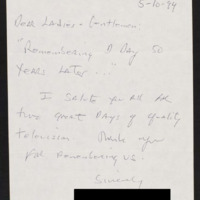 5-10-94
Dear Ladies + Gentlemen:
"Remembering D Day 50
Years Later..."
I salute you all for
two great days of quality
television Thank you
for remembering us.
Sincerely